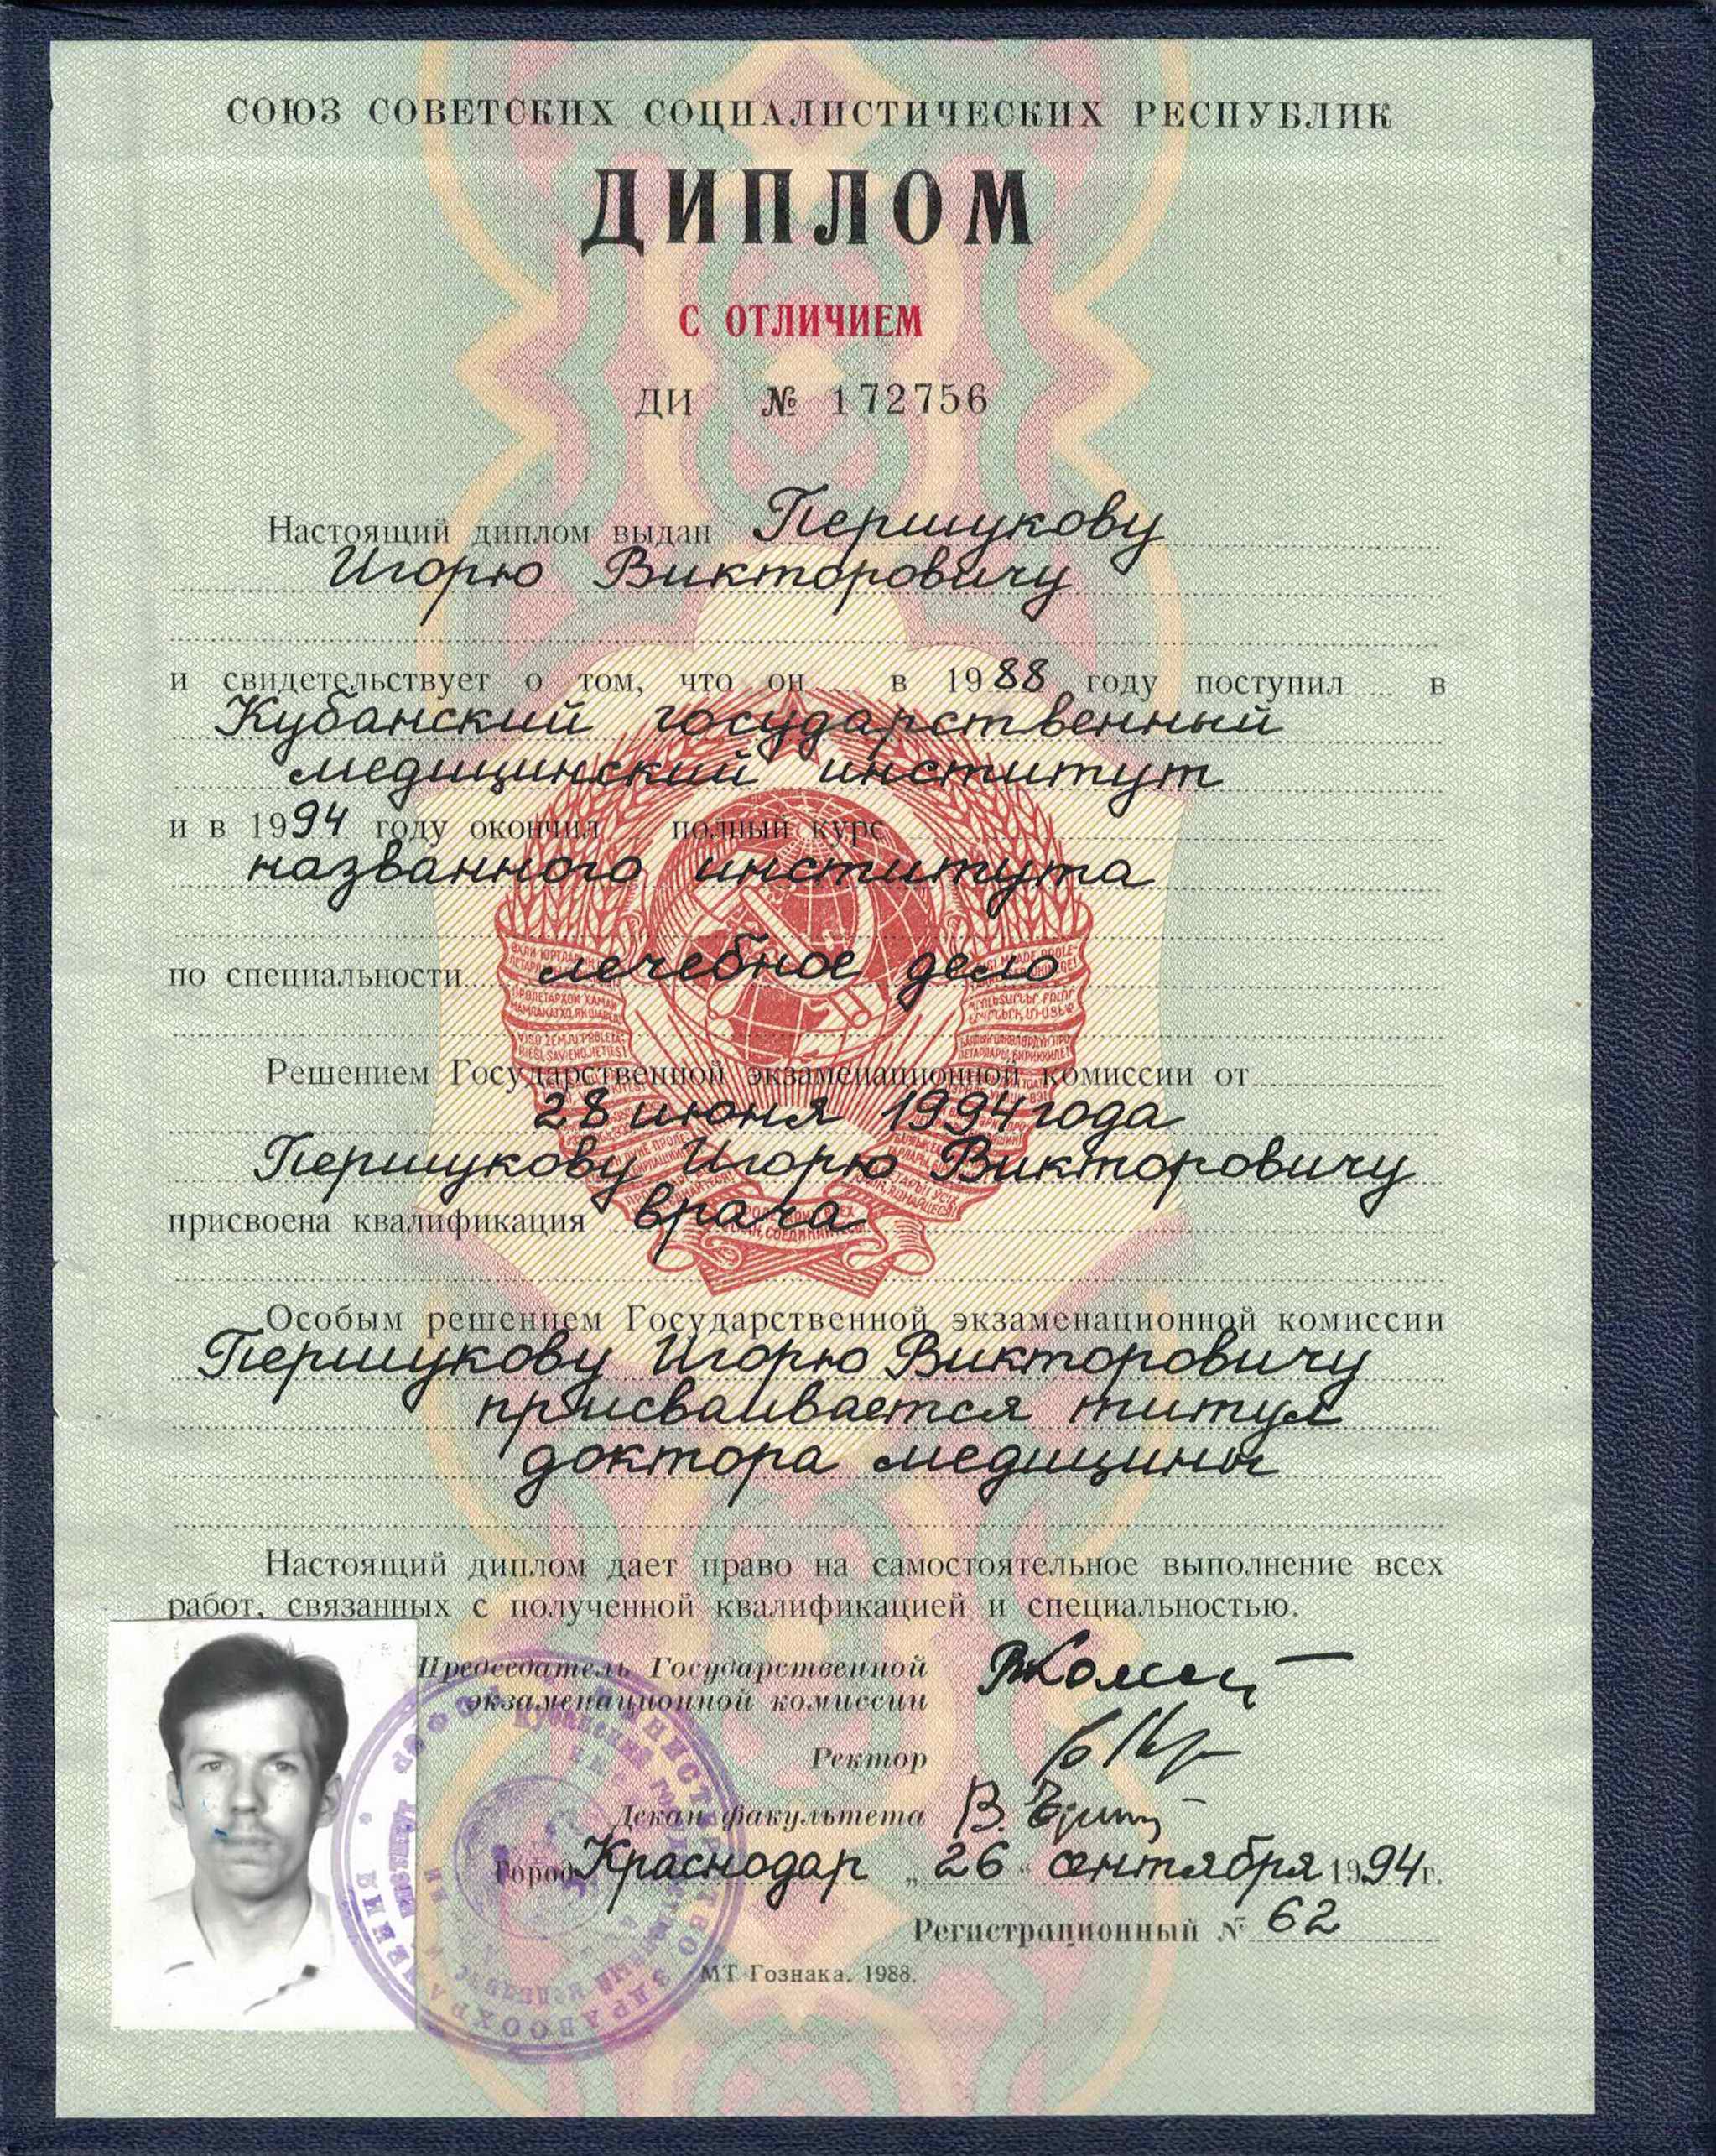 СОЮЗ СОВЕТСКИХ СОЦИАЛИСТИЧЕСКИХ РЕСПУБЛИК
ДИПЛОМ
С ОТЛИЧИЕМ
ДИ № 172756
Настоящий диплом выдан Першукову
Игорю Викторовичу
и свидетельствует о том, что он в 1988 году поступил в
Кубанский государственный
медицинский институт
и в 1994 году окончил полный курс
названного института
по специальности лечебное дело
Решением Государственной экзаменационной комиссии от
28 июня 1994 года
Першукову Игорю Викторовичу
присвоена квалификация врача
Особым решением Государственной экзаменационной комиссии
Першукову Игорю Викторовичу
присваивается титул
доктора медицины
Настоящий диплом дает право на самостоятельное выполнение всех
работ, связанных с полученной квалификацией и специальностью.
Председатель Государственной
экзаменационной комиссии
Ректор
Декан факультета
Город Краснодар „26“ сентября 1994 г.
Регистрационный № 62
МТ Гознака. 1988.